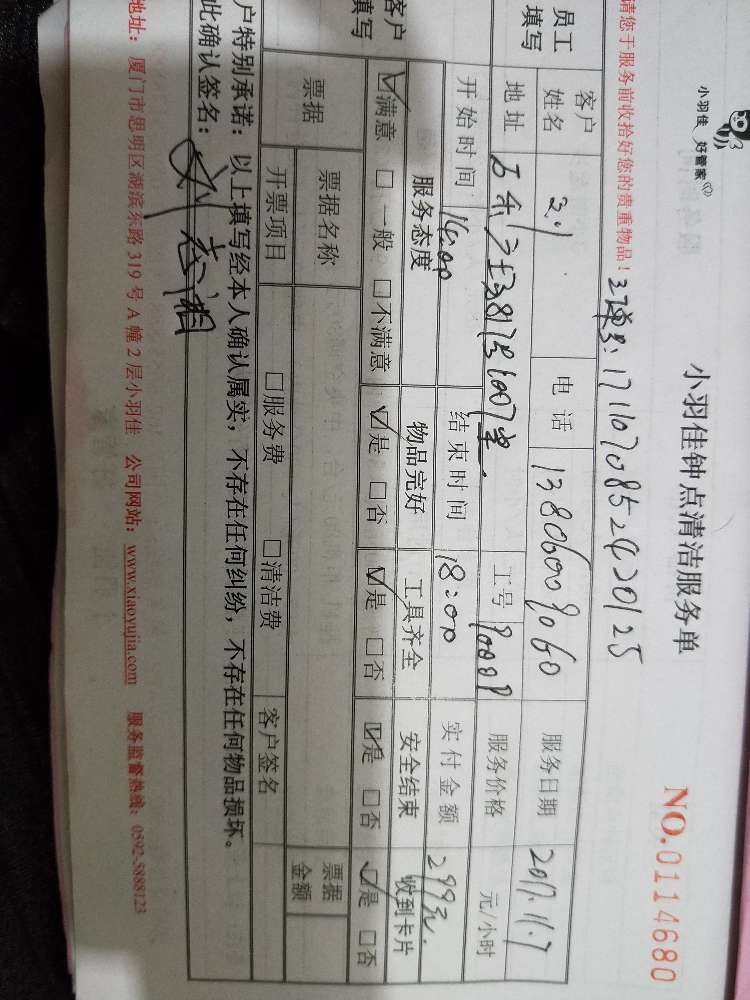 小羽佳 好管家
小羽佳钟点清洁服务单
NO.0114680
请您于服务前收拾好您的贵重物品！
订单号：1711070852420125
员工填写
客户姓名 电话 13806009060 服务日期 2017.11.7
地址 817号1007室. 工号 服务价格 元/小时
开始时间 14:00 结束时间 18:00 实付金额 299元.
客户填写
服务态度 物品完好 工具齐全 安全结束 收到卡片
☑满意 □一般 □不满意 ☑是 □否 ☑是 □否 ☑是 □否 ☑是 □否
票据 票据名称 票据金额
开票项目 □服务费 □清洁费 客户签名
户特别承诺：以上填写经本人确认属实，不存在任何纠纷，不存在任何物品损坏。
此确认签名：
地址：厦门市思明区湖滨东路 319 号 A 幢 2 层小羽佳 公司网站：www.xiaoyujia.com 服务监督热线：0592-5888123